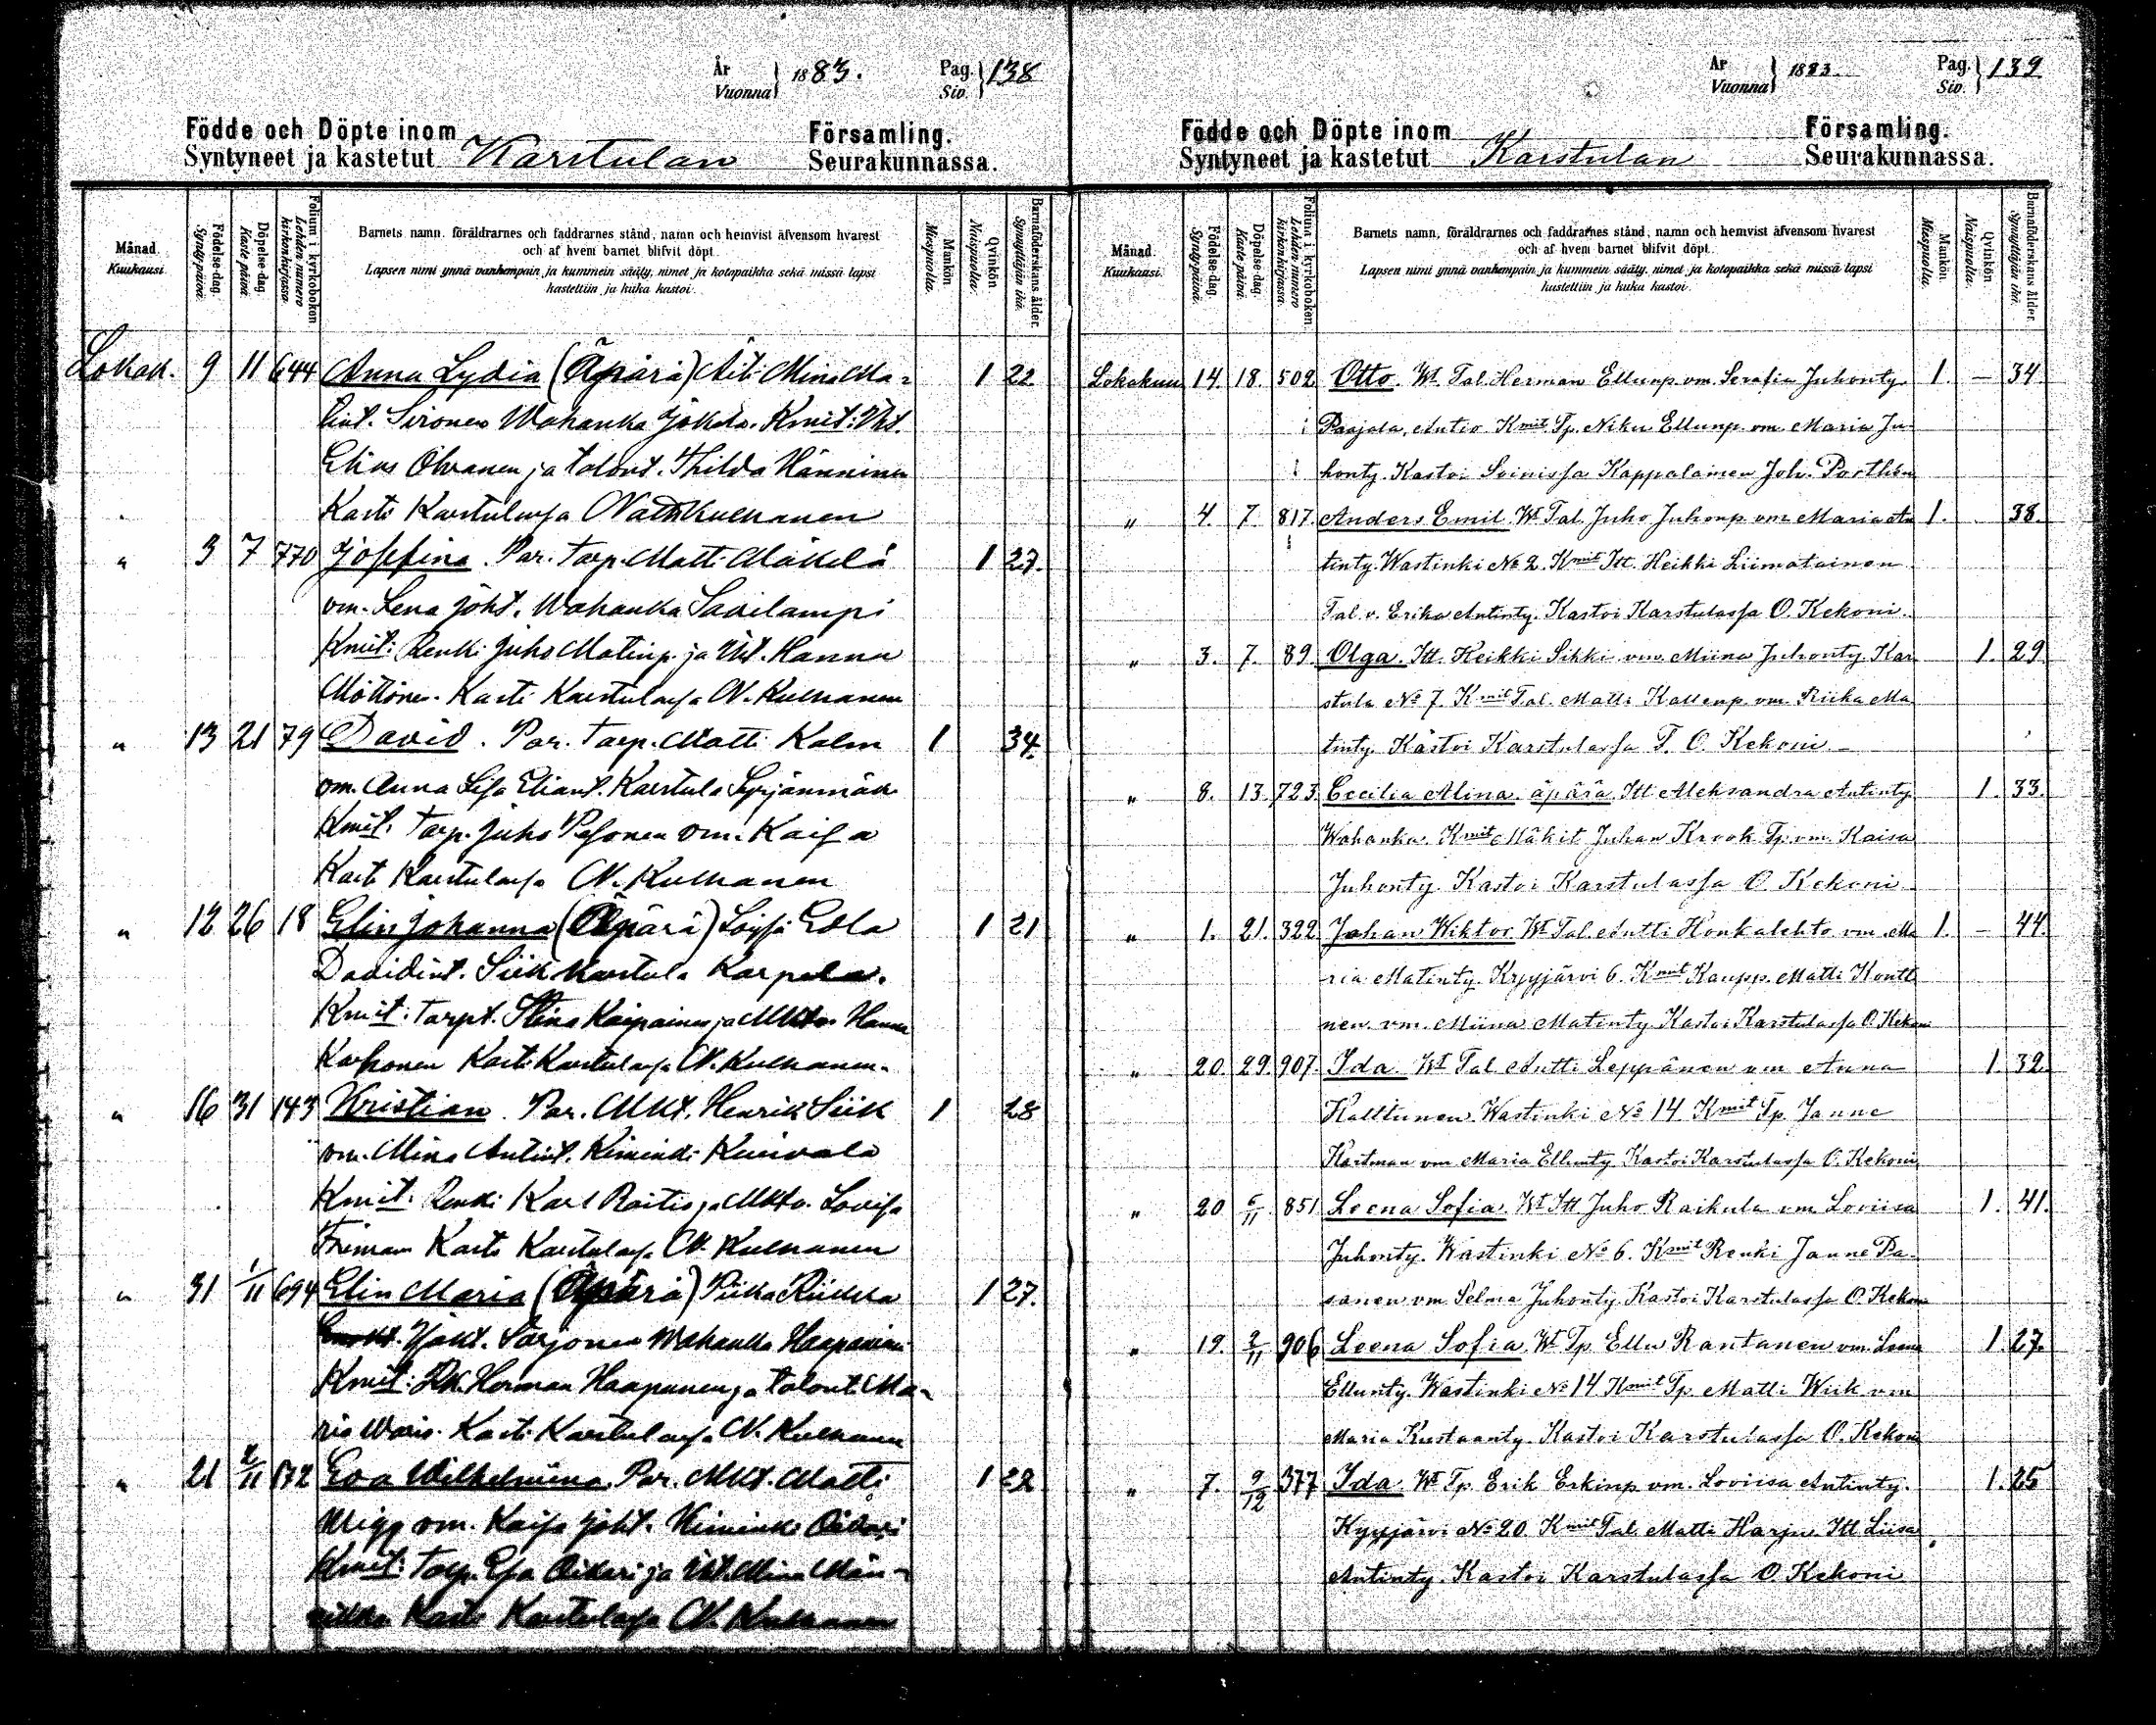 År
Vuonna } 1883.
Pag.
Siv. } 138
Födde och Döpte inom
Syntyneet ja kastetut Karstulan
Församling.
Seurakunnassa.
Månad.
Kuukausi.
Födelse-dag.
Synty-päivä.
Döpelse-dag.
Kaste päivä.
Folium i kyrkoboken
Lehden numero
kirkonkirjassa.
Barnets namn, föräldrarnes och faddrarnes stånd, namn och hemvist äfvensom hvarest
och af hvem barnet blifvit döpt.
Lapsen nimi ynnä vanhempain ja kummein sääty, nimet ja kotopaikka sekä missä lapsi
kastettiin ja kuka kastoi.
Mankön
Miespuolia.
Qvinkön.
Naispuolia.
Barnaföderskans ålder.
Synnyttäjän ikä.
Lokak. 9 11 644 Anna Lydia (Äpärä) Äiti Mina Ma- 1 22
tint. Sironen Wahanka Jokela. Kmit: Iht.
Elias Ohranen ja talont. Thilda Hänninen
Kasti Karstulassa N Kulhanen
" 3 7 770 Josefina. Par. Torp. Matti Mäkelä 1 27.
vm. Lena Joht. Wahanka Savilampi
Kmit: Renki Juho Matinp. ja Iht. Hanna
Möttönen. Kasti Karstulassa N. Kulhanen
" 13 21 79 David. Par. Torp. Matti Kalm 1 34.
vm. Anna Lisa Eliant. Karstula Syrjänmäk
Kmit. Torp. Juho Pesonen vm. Kaisa
Kasti Karstulassa N. Kulhanen
" 12 26 18 Elin Johanna (Äpärä) Loysä Edla 1 21
Davidint. Siik Karstula Karpela.
Kmit: Torpt. Stina Kaipainen ja Mktv. Hanna
Korhonen Kasti Karstulassa N. Kulhanen.
" 16 31 143 Kristian. Par. Mkt. Henrik Siik 1 28
vm. Mina Antint. Kiminki Kuivala
Kmit. Renki Karl Raitis ja Mktv. Lovisa
Friman Kasti Karstulassa N. Kulhanen
" 31 1/11 694 Elin Maria (Äpärä) Piika Riikka 1 27.
Joht. Sarjonen Wahanka Haapaniemi
Kmit: Herman Haapanen ja talont. Ma-
ria Waris. Kasti Karstulassa N. Kulhanen
" 21 2/11 172 Eva Wilhelmiina. Par. Mkt. Matti 1 22
Wigg vm. Kaisa Joht. Kiminki Oikari
Kmit: Torp. Esa Oikari ja Iht. Mina Män-
nikkö Kasti Karstulassa N. Kulhanen
År
Vuonna } 1883.
Pag.
Siv. } 139
Födde och Döpte inom
Syntyneet ja kastetut Karstulan
Församling.
Seurakunnassa.
Månad.
Kuukausi.
Födelse-dag.
Synty-päivä.
Döpelse-dag.
Kaste päivä.
Folium i kyrkoboken.
Lehden numero
kirkonkirjassa.
Barnets namn, föräldrarnes och faddrarnes stånd, namn och hemvist äfvensom hvarest
och af hvem barnet blifvit döpt.
Lapsen nimi ynnä vanhempain ja kummein sääty, nimet ja kotopaikka sekä missä lapsi
kastettiin ja kuka kastoi.
Mankön.
Miespuolia.
Qvinkön
Naispuolia.
Barnaföderskans ålder.
Synnyttäjän ikä.
Lokakuu 14. 18. 502 Otto. Wt Tal. Herman Ellunp. vm. Serafia Juhonty. 1. — 34.
Paajala, Autio. Kmit. Tp. Niku Ellunp. vm. Maria Ju
honty. Kastoi Soinissa Kappalainen Joh. Porthén
" 4. 7. 817. Anders Emil. Wt Tal. Juho Juhonp. vm. Maria An 1. 38.
tinty. Wastinki No 2. Kmit Itt. Heikki Liimatainen
Tal. v. Erika Antinty. Kastoi Karstulassa O. Kekoni.
" 3. 7. 89. Olga. Itt. Heikki Sihki vm. Miina Juhonty. Kar 1. 29
stula No 7. Kmit Tal. Matti Kallenp. vm. Riika Ma
tinty. Kastoi Karstulassa T. O. Kekoni —
" 8. 13. 723. Cecilia Alina. äpärä. Itt. Aleksandra Antinty. 1. 33.
Wahanka. Kmit Mäkit. Juhan Krook. Tp. vm. Kaisa
Juhonty. Kastoi Karstulassa O. Kekoni
" 1. 21. 322. Johan Wiktor. Wt Tal. Antti Honkalehto vm. Ma 1. — 44.
ria Matinty. Kyyjärvi 6. Kmit Kaupp. Matti Kontti
nen. vm. Miina Matinty. Kastoi Karstulassa O. Kekoni
" 20. 29. 907. Ida. Wt Tal. Antti Leppänen vm. Anna 1. 32.
Kalttunen. Wastinki No 14. Kmit Tp. Janne
Hartman vm. Maria Ellunty. Kastoi Karstulassa O. Kekoni
" 20 6/11. 851 Leena Sofia. Wt Itt Juho Raikula vm. Loviisa 1. 41.
Juhonty. Wastinki No 6. Kmit Renki Janne Pa-
sanen vm. Selma Juhonty. Kastoi Karstulassa O. Kekoni
" 19. 2/11 906 Leena Sofia. Wt Tp. Ellu Rantanen vm. Leena 1. 27.
Ellunty. Wastinki No 14. Kmit Tp. Matti Wiik vm
Maria Kustaanty. Kastoi Karstulassa O. Kekoni
" 7. 9/12 377 Ida. Wt Tp. Erik Erkinp. vm. Loviisa Antinty. 1. 25
Kyyjärvi No 20. Kmit Tal. Matti Harju. Itt. Liisa
Antinty. Kastoi Karstulassa O. Kekoni